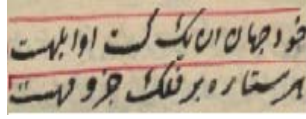 خود جهان آن یک کس است او ابلهست
هر ستاره بر فلک جزو مهست